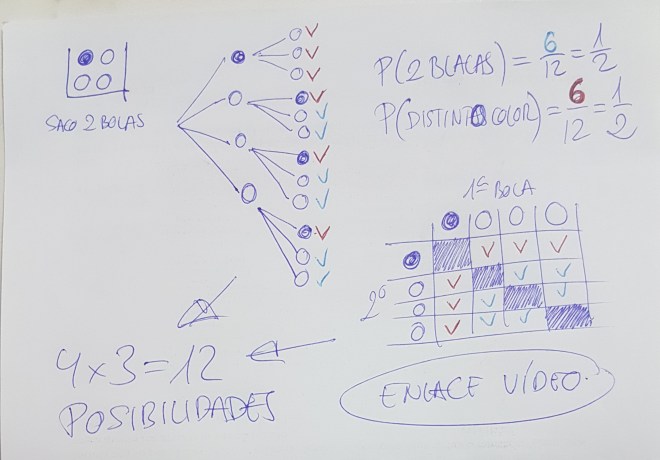 SACO 2 BOLAS
P(2 BLACAS) = 6/12 = 1/2
P(DISTINTA COLOR) = 6/12 = 1/2
1ª BOLA
2ª
4x3=12
POSIBILIDADES
ENLACE VÍDEO.